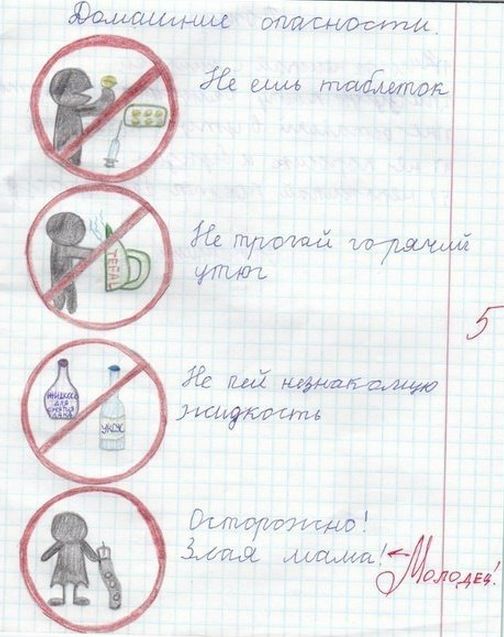 Домашние опасности.
Не ешь таблеток
Не трогай горячий
утюг
ТЕФАЛ
5
Не пей незнакомую
жидкость
ЖИДКОСТЬ
ДЛЯ
СНЯТИЯ
ЛАКА
УКСУС
Осторожно!
Злая мама!
Молодец!